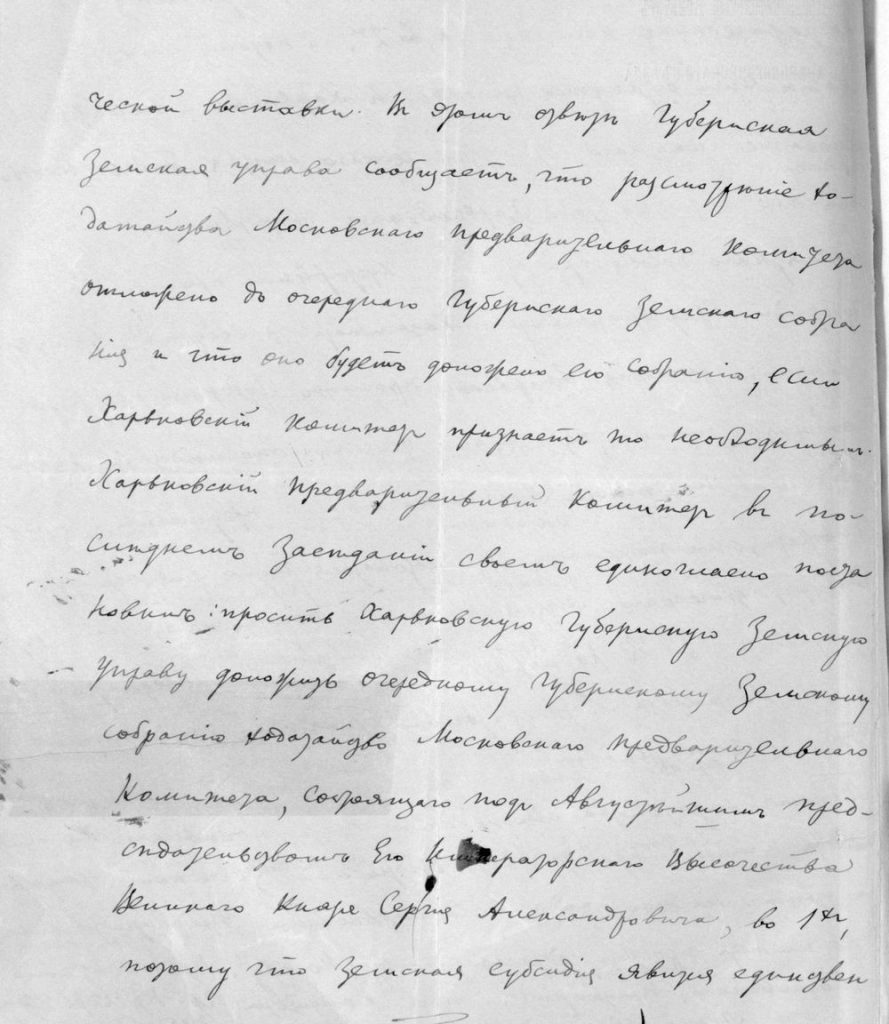 ческой выставки. Въ этомъ отвѣтѣ Губернская
Земская управа сообщаетъ, что разсмотрѣніе хо-
датайства Московскаго предварительнаго Комитета
отложено до очереднаго Губернскаго Земскаго собра
нія и что оно будетъ доложено ею Собранію, если
Харьковскій Комитетъ признаетъ то необходимымъ.
Харьковскій предварительный Комитетъ въ по-
слѣднемъ засѣданіи своемъ единогласно поста
новилъ: просить Харьковскую Губернскую Земскую
Управу доложить очередному Губернскому Земскому
собранію ходатайство Московскаго предварительнаго
Комитета, состоящаго подъ Августѣйшимъ пред-
сѣдательствомъ Его Императорскаго Высочества
Великаго Князя Сергія Александровича, во 1хъ,
потому что земская субсидія явится единствен